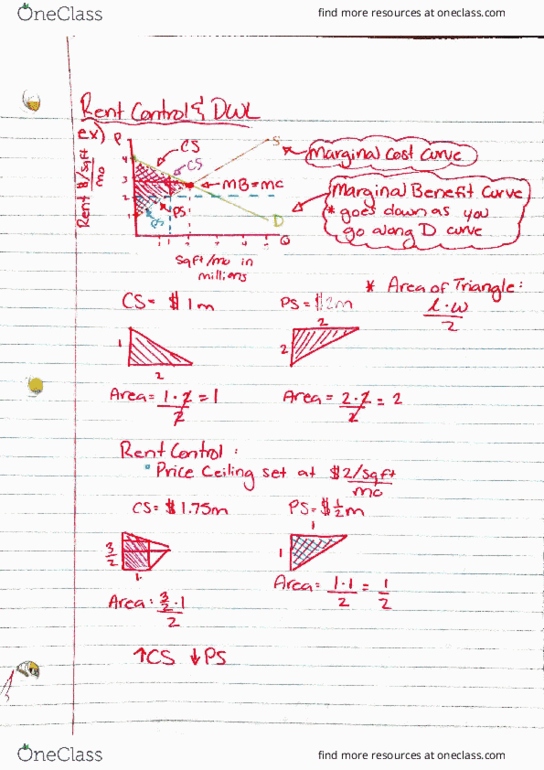 OneClass
find more resources at oneclass.com
Rent Control & DWL
ex)
P
CS
S
Marginal Cost Curve
CS
4
3
MB=MC
2
PS
D
Q
Rent $/sqft
mo
Marginal Benefit Curve
* goes down as you
go along D curve
1 2 3 4 5
sqft/mo in
millions
* Area of Triangle:
l·w
2
CS= $1m
PS=$2m
1
2
2
2
Area= 1·2 = 1
2
Area= 2·2 = 2
2
Rent Control:
Price Ceiling set at $2/sqft
mo
CS= $1.75m
PS=$½m
3/2
1
1
1
Area: 3/2·1
2
Area= 1·1 = 1
2 2
↑CS ↓PS
OneClass
find more resources at oneclass.com